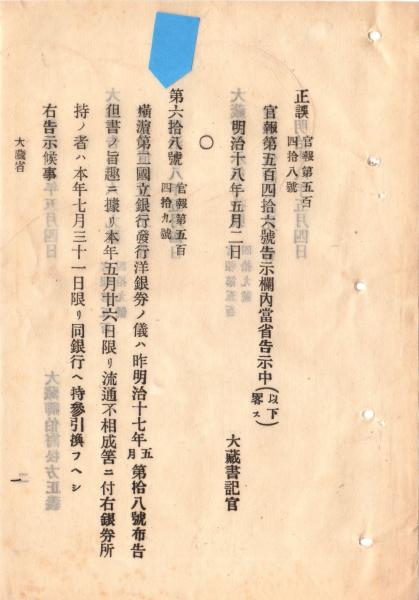 正誤 官報第五百四拾八號
官報第五百四拾六號告示欄內當省告示中(以下畧ス)
明治十八年五月二日
大藏書記官
○
第六拾八號 官報第五百四拾九號
橫濱第二國立銀行發行洋銀券ノ儀ハ昨明治十七年五月第拾八號布告
但書ノ旨趣ニ據リ本年五月廿六日限リ流通不相成筈ニ付右銀券所
持ノ者ハ本年七月三十一日限リ同銀行ヘ持參引換フヘシ
右告示候事
大藏省
一